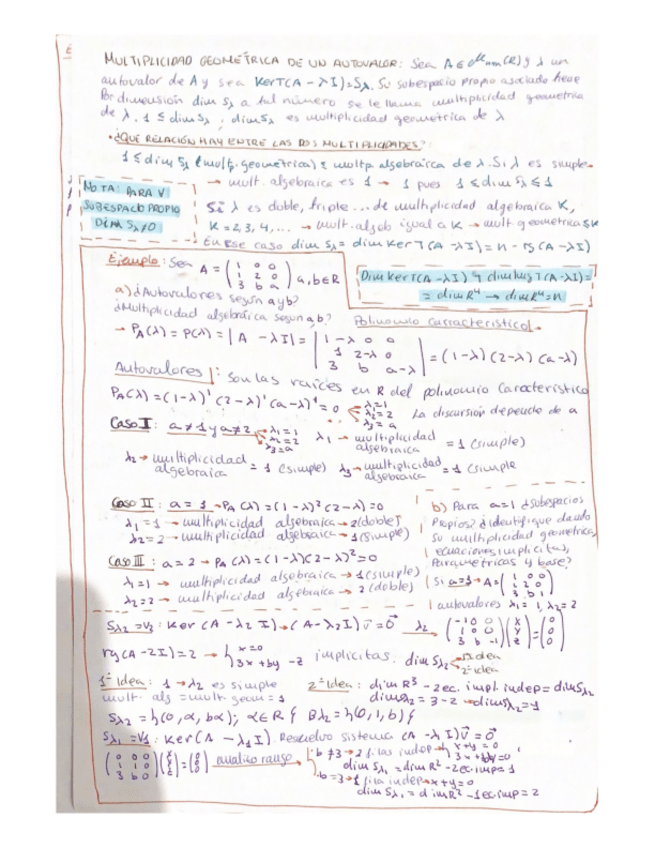 MULTIPLICIDAD GEOMÉTRICA DE UN AUTOVALOR: Sea A ∈ Mnxn(R) y λ un
autovalor de A y sea KerT(A - λI) = Sλ. Su subespacio propio asociado tiene
Por dimensión dim Sλ a tal número se le llama multiplicidad geometrica
de λ. 1 ≤ dim Sλ ; dim Sλ es multiplicidad geometrica de λ
• ¿QUE RELACIÓN HAY ENTRE LAS DOS MULTIPLICIDADES?:
1 ≤ dim Sλ (mult. geometrica) ≤ multp. algebraica de λ. Si λ es simple
→ mult. algebraica es 1 → 1 pues 1 ≤ dim Sλ ≤ 1
NOTA: PARA ∀
SUBESPACIO PROPIO
DIM Sλ ≠ 0
Si λ es doble, triple... de multiplicidad algebraica K,
K = 2, 3, 4, ... → mult. algeb igual a K → mult. geometrica ≤ K
En ese caso dim Sλ = dim Ker T(A - λI) = n - rg(A - λI)
Ejemplo: Sea A = (1 0 0 / 1 2 0 / 3 b a) a, b ∈ R
Dim Ker T(A - λI) y dim Img T(A - λI) =
= dim R^n → dim R^n = n
a) ¿Autovalores según a y b?
¿Multiplicidad algebraica según a, b?
Polinomio Carracteristico
→ PA(λ) = P(λ) = |A - λI| = |1-λ 0 0 / 1 2-λ 0 / 3 b a-λ| = (1-λ)(2-λ)(a-λ)
Autovalores: Son las raíces en R del polinomio Caracteristico
PA(λ) = (1-λ)¹(2-λ)¹(a-λ)¹ = 0 λ=1 λ=2 λ=a La discursión depende de a
Caso I: a ≠ 1 y a ≠ 2 λ1=1 λ2=2 λ3=a λ1 → multiplicidad algebraica = 1 (simple)
λ2 → multiplicidad algebraica = 1 (simple) λ3 → multiplicidad algebraica = 1 (simple
Caso II: a = 1 → PA(λ) = (1-λ)²(2-λ) = 0
λ1 = 1 → multiplicidad algebraica → 2 (doble)
λ2 = 2 → multiplicidad algebraica → 1 (simple)
Caso III: a = 2 → PA(λ) = (1-λ)(2-λ)² = 0
λ1 = 1 → multiplicidad algebraica → 1 (simple)
λ2 = 2 → multiplicidad algebraica → 2 (doble)
b) Para a=1 ¿Subespacios
Propios? ¿identifique dando
Su multiplicidad geometrica,
ecuaciones implicitas,
Parametricas y base?
Si a=1 → A = (1 0 0 / 1 2 0 / 3 b 1)
autovalores λ1 = 1, λ2 = 2
Sλ2 = V2: Ker (A - λ2 I) → (A - λ2 I) v = 0 λ2 (-1 0 0 / 1 0 0 / 3 b -1)(x / y / z) = (0 / 0 / 0)
rg(A - 2I) = 2 → { x = 0 / 3x + by - z implicitas. dim Sλ2 1ª idea 2ª idea
1ª Idea: 1 → λ2 es simple
mult. alg = mult. geom = 1
2ª Idea: dim R³ - 2 ec. impl. indep = dim Sλ2
dim Sλ2 = 3 - 2 → dim Sλ2 = 1
Sλ2 = {(0, α, bα); α ∈ R} Bλ2 = {(0, 1, b)}
Sλ1 = V1: Ker (A - λ1 I). Resuelvo sistema (A - λI) v = 0
(0 0 0 / 1 1 0 / 3 b 0)(x / y / z) = (0 / 0 / 0) analizo rango
· b ≠ 3 → 2 filas indep → { x + y = 0 / 3x + by = 0
dim Sλ1 = dim R³ - 2 ec. imp = 1
· b = 3 → 1 fila indep → x + y = 0
dim Sλ1 = dim R³ - 1 ec. imp = 2